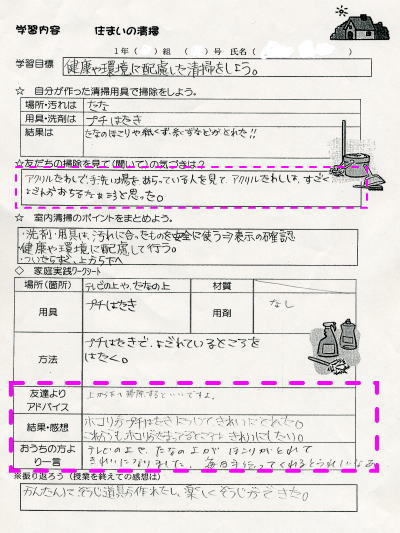 学習内容　住まいの清掃
1年（　）組（　）号 氏名（　）
学習目標　健康や環境に配慮した清掃をしよう。
☆　自分が作った清掃用具で掃除をしよう。
場所・汚れは　たな
用具・洗剤は　プチはたき
結果は　たなのほこりや紙くず、糸くずなどがとれた!!
☆友だちの掃除を見て(聞いて)の気づきは？
アクリルたわしで、手洗い場をあらっている人を見て、アクリルたわしは、すごく
よごれがおちるなぁと思った。
☆　室内清掃のポイントをまとめよう。
・洗剤・用具は、汚れに合ったものを安全に使う⇒表示の確認
・健康や環境に配慮して行う。
上から下へ
◇　家庭実践ワークシート
場所(箇所)　テレビの上や、たなの上　材質
用具　プチはたき　用剤　なし
方法　プチはたきで、よごれているところを
はたく。
友達より
アドバイス　上から下へ掃除するといいですよ。
結果・感想　ホコリがプチはたきについてきれいにとれた。
きれいにしたい。
おうちの方よ
り一言　テレビの上や、たなの上がほこりがとれて
きれいになりました。毎日手伝ってくれるとうれしいなあ
※振り返ろう（授業を終えての感想は）
かんたんにそうじ道具が作れたし、楽しくそうじができた。